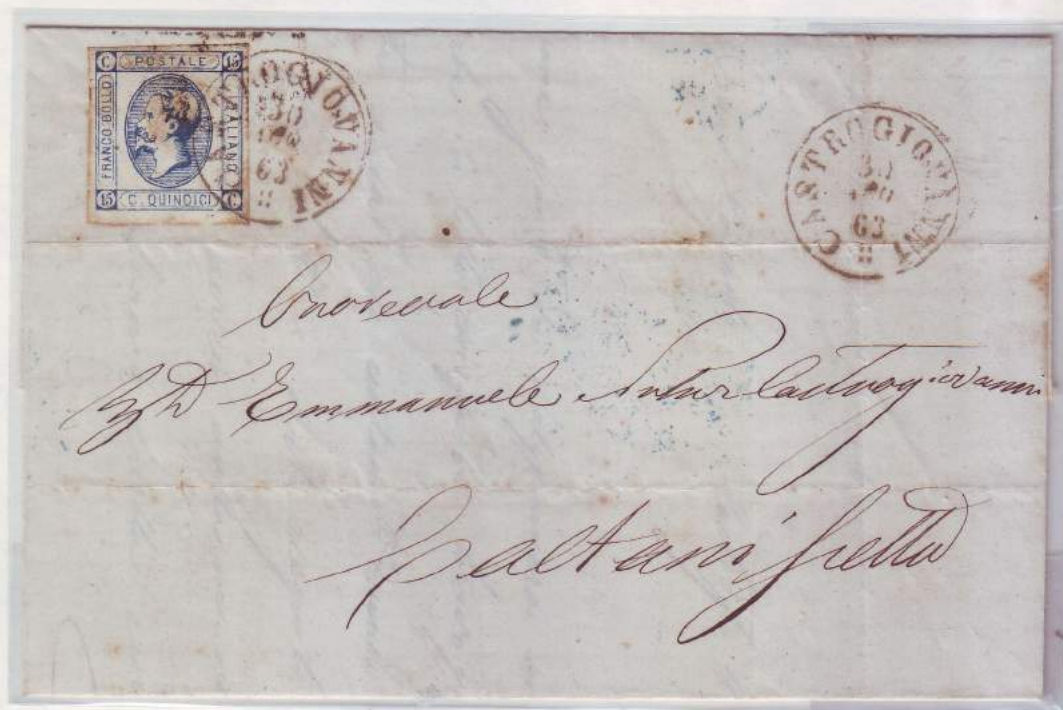 C POSTALE 15
FRANCO BOLLO
ITALIANO
15 C. QUINDICI C
CASTROGIOVANNI
30
63
CASTROGIOVANNI
30
63
Onorevole
Emmanuele Castrogiovanni
Caltanissetta